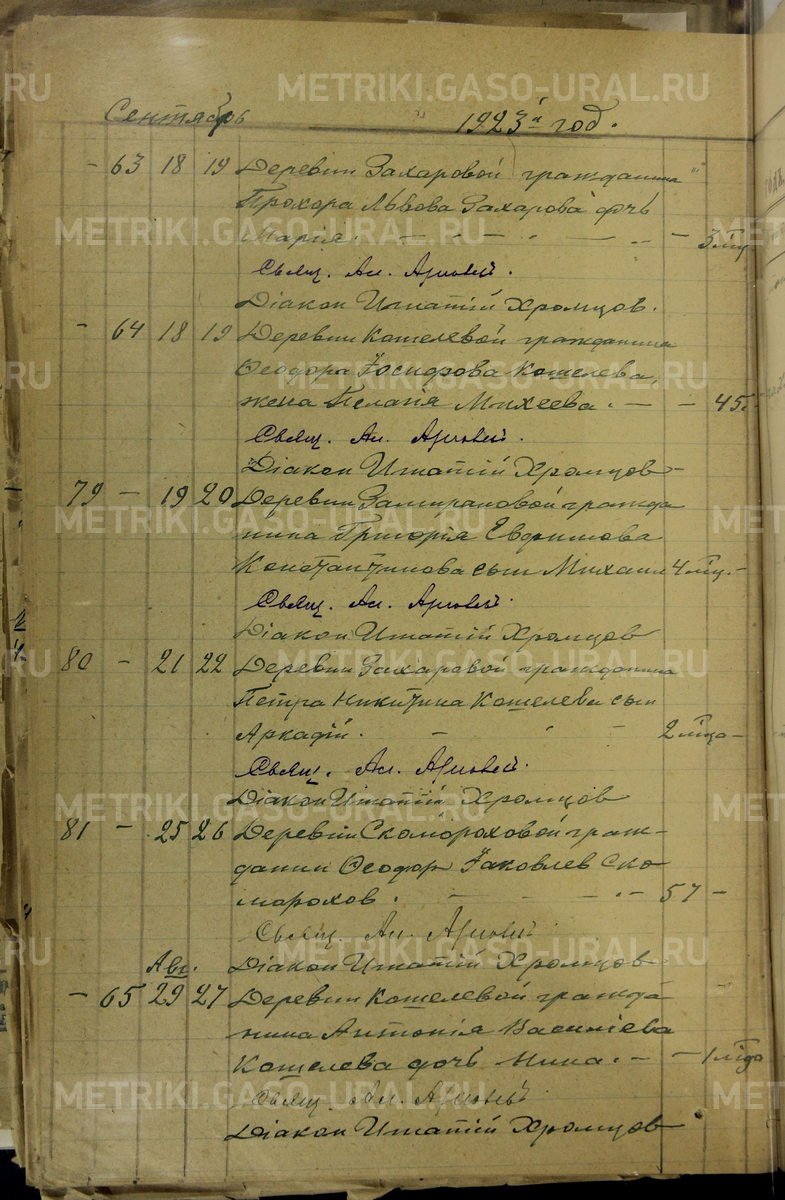 Сентябрь 1923й год.
- 63 18 19 Деревни Захаровой гражданина
Прохора Львова Захарова дочь
Мария. - 3 м-ца
Свящ. Ал.
Діакон Игнатій Хромцов.
- 64 18 19 Деревни Кошелевой гражданина
Ѳеодора Іосифова Кошелева,
жена Пелагія Михеева. - - 45.
Свящ. Ал.
Діакон Игнатій Хромцов
79 - 19 20 Деревни гражда
нина Григорія Евфимова
Константинова сын Михаил 4 м-ц.
Свящ. Ал.
Діакон Игнатій Хромцов
80 - 21 22 Деревни Захаровой гражданина
Петра Никитина Кошелева сын
Аркадій. - 2 м-ца -
Свящ. Ал.
Діакон Игнатій Хромцов
81 - 25 26 Деревни Скомороховой граж-
данин Ѳеодор Іаковлев Ско
морохов. - 57 -
Свящ. Ал.
Авг. Діакон Игнатій Хромцов
- 65 29 27 Деревни Кошелевой гражда
нина Антонія Василіева
Кошелева дочь Нина. - - 1 м-ца
Свящ. Ал.
Діакон Игнатій Хромцов
METRIKI.GASO-URAL.RU